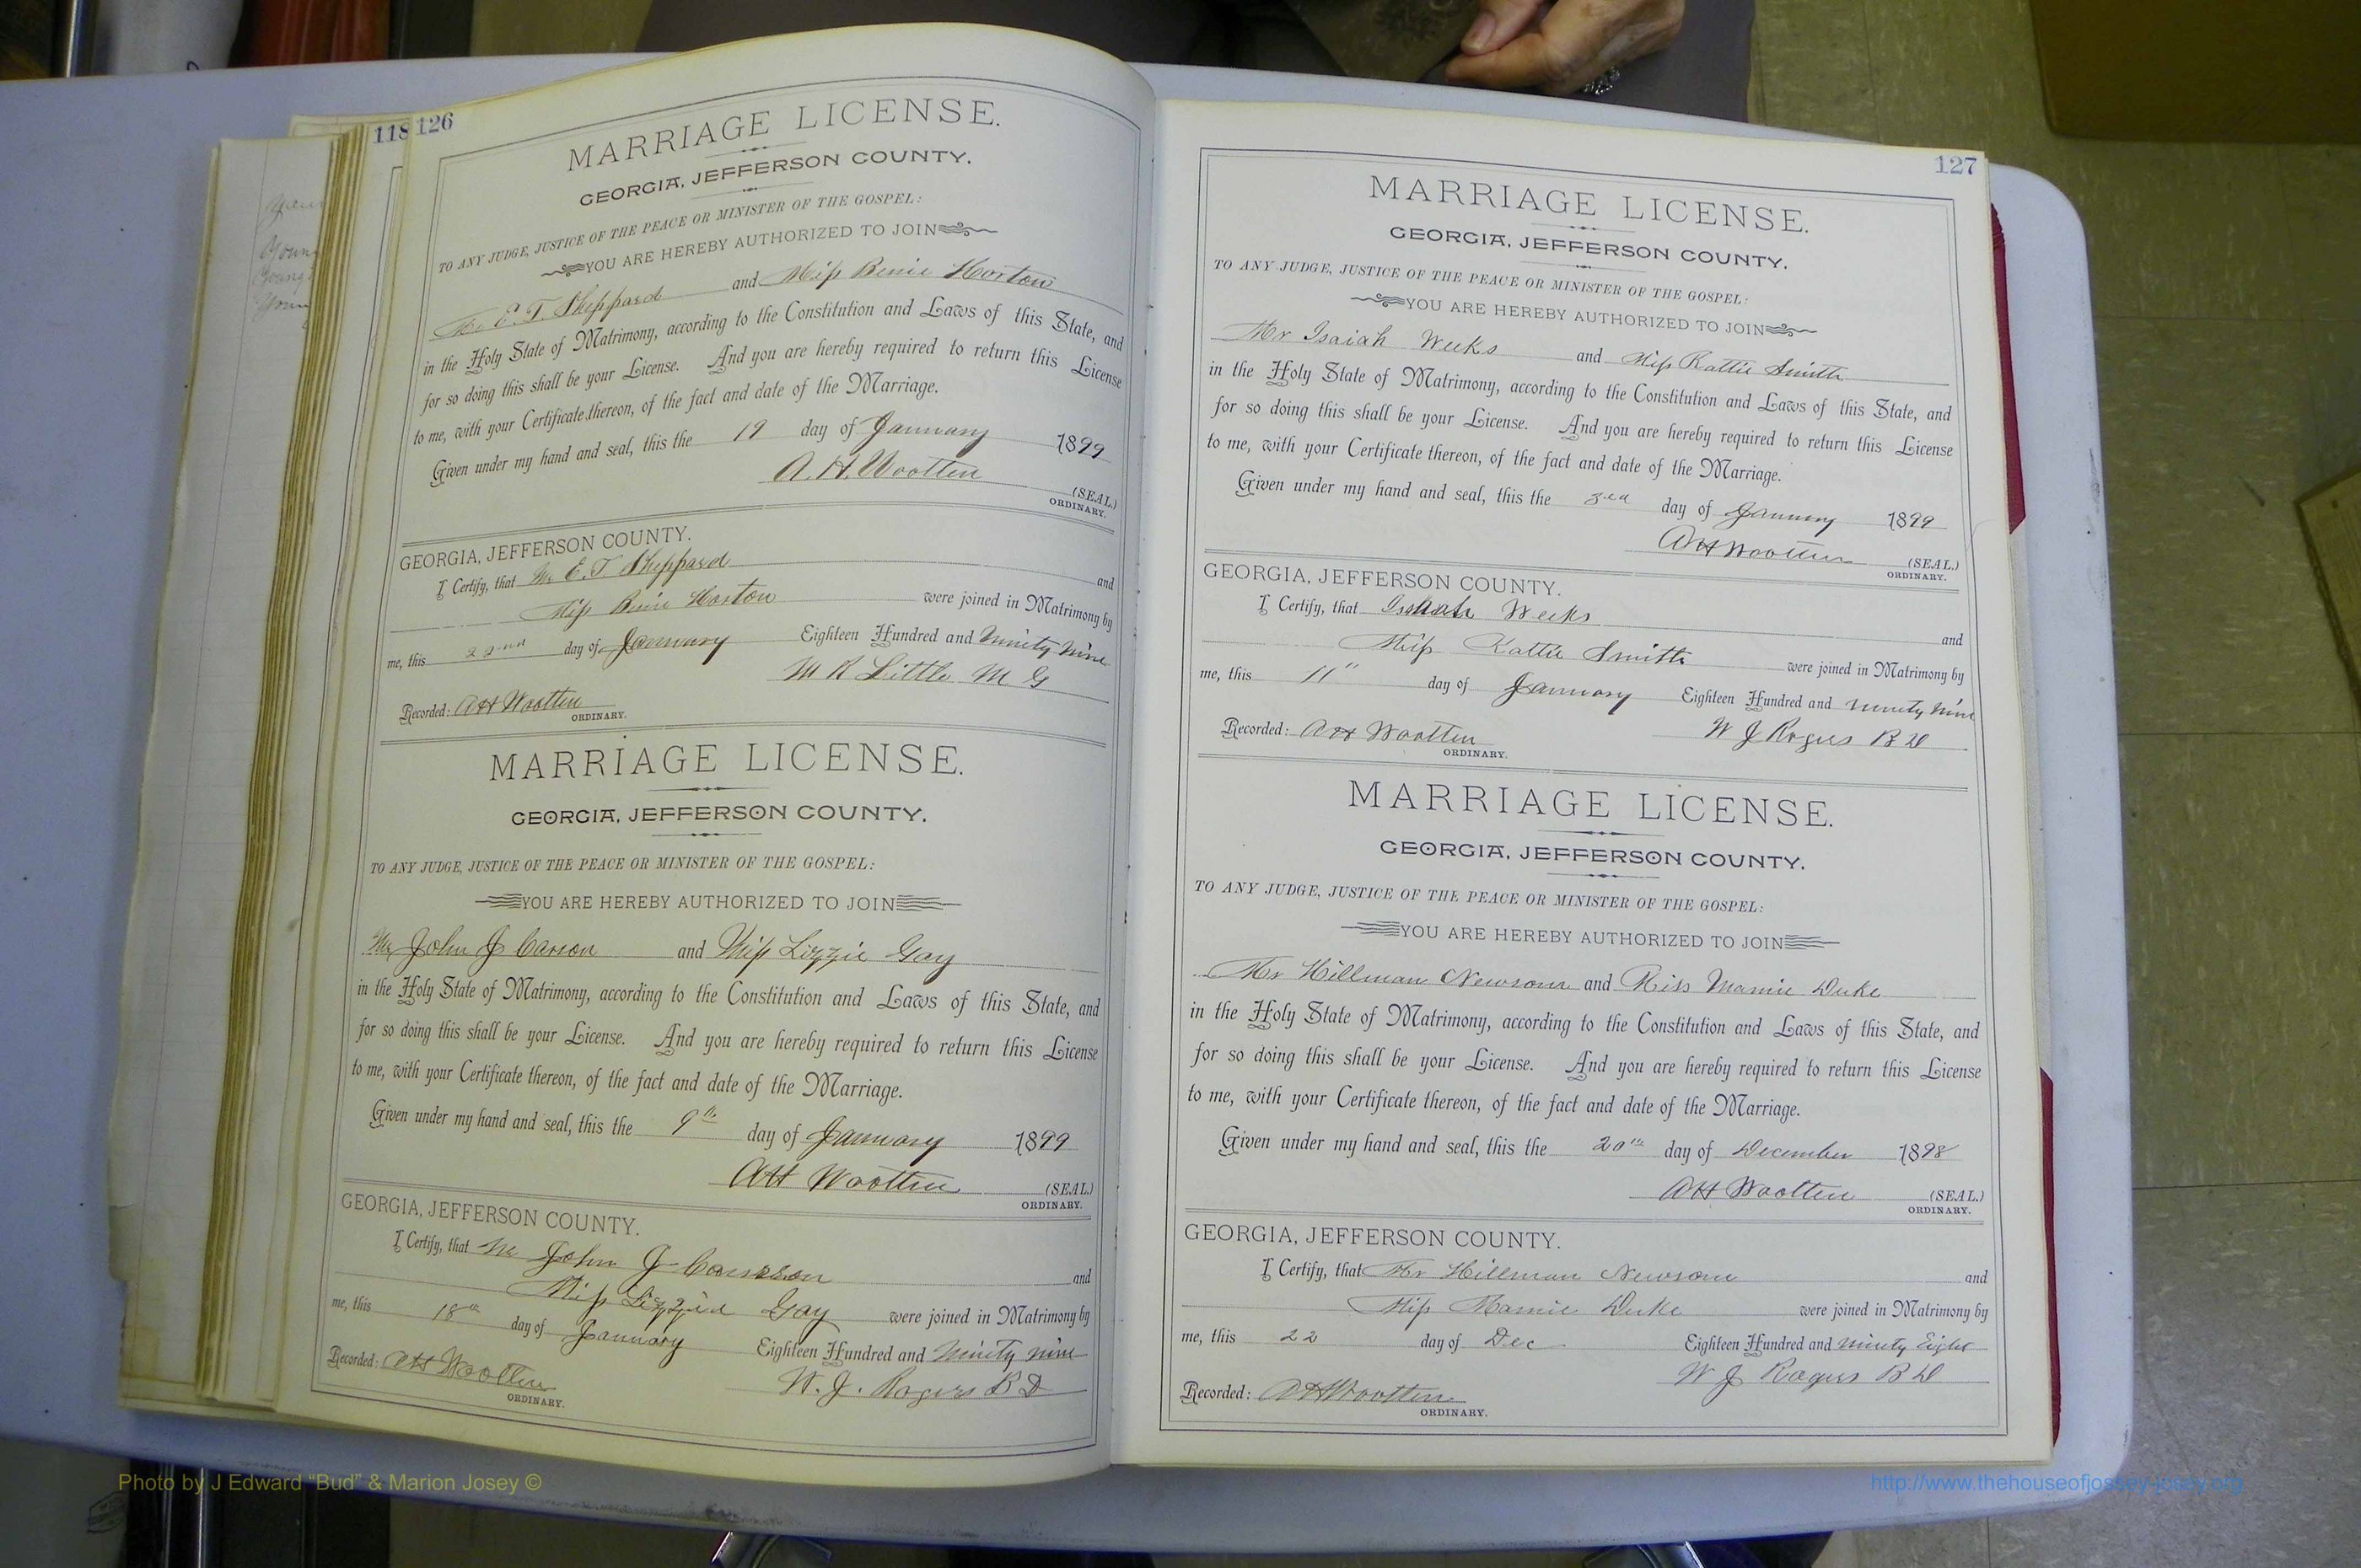 118 126
MARRIAGE LICENSE.
GEORGIA, JEFFERSON COUNTY.
TO ANY JUDGE, JUSTICE OF THE PEACE OR MINISTER OF THE GOSPEL:
YOU ARE HEREBY AUTHORIZED TO JOIN
Mr E. T. Sheppard and Miss Benie Horton
in the Holy State of Matrimony, according to the Constitution and Laws of this State, and
for so doing this shall be your License. And you are hereby required to return this License
to me, with your Certificate thereon, of the fact and date of the Marriage.
Given under my hand and seal, this the 19 day of January 1899
A. H. Wootten (SEAL.)
ORDINARY.
GEORGIA, JEFFERSON COUNTY.
I Certify, that Mr E. T. Sheppard and
Miss Benie Horton were joined in Matrimony by
me, this 22nd day of January Eighteen Hundred and Ninety Nine
M R Little M G
Recorded: A H Wootten
ORDINARY.
MARRIAGE LICENSE.
GEORGIA, JEFFERSON COUNTY.
TO ANY JUDGE, JUSTICE OF THE PEACE OR MINISTER OF THE GOSPEL:
YOU ARE HEREBY AUTHORIZED TO JOIN
Mr John J Carson and Miss Lizzie Gay
in the Holy State of Matrimony, according to the Constitution and Laws of this State, and
for so doing this shall be your License. And you are hereby required to return this License
to me, with your Certificate thereon, of the fact and date of the Marriage.
Given under my hand and seal, this the 9th day of January 1899
A H Wootten (SEAL.)
ORDINARY.
GEORGIA, JEFFERSON COUNTY.
I Certify, that Mr John J and
Miss Lizzie Gay were joined in Matrimony by
me, this 18th day of January Eighteen Hundred and Ninety nine
W. J. Rogers B D
Recorded: A H Wootten
ORDINARY.
127
MARRIAGE LICENSE.
GEORGIA, JEFFERSON COUNTY.
TO ANY JUDGE, JUSTICE OF THE PEACE OR MINISTER OF THE GOSPEL:
YOU ARE HEREBY AUTHORIZED TO JOIN
Mr Isaiah Weeks and Miss Kattie Smith
in the Holy State of Matrimony, according to the Constitution and Laws of this State, and
for so doing this shall be your License. And you are hereby required to return this License
to me, with your Certificate thereon, of the fact and date of the Marriage.
Given under my hand and seal, this the 3rd day of January 1899
A H Wootten (SEAL.)
ORDINARY.
GEORGIA, JEFFERSON COUNTY.
I Certify, that Weeks and
Miss Kattie Smith were joined in Matrimony by
me, this 11" day of January Eighteen Hundred and ninety nine
W J Rogers B D
Recorded: A H Wootten
ORDINARY.
MARRIAGE LICENSE.
GEORGIA, JEFFERSON COUNTY.
TO ANY JUDGE, JUSTICE OF THE PEACE OR MINISTER OF THE GOSPEL:
YOU ARE HEREBY AUTHORIZED TO JOIN
Mr Hillman Newsom and Miss Mamie Duke
in the Holy State of Matrimony, according to the Constitution and Laws of this State, and
for so doing this shall be your License. And you are hereby required to return this License
to me, with your Certificate thereon, of the fact and date of the Marriage.
Given under my hand and seal, this the 20th day of December 1898
A H Wootten (SEAL.)
ORDINARY.
GEORGIA, JEFFERSON COUNTY.
I Certify, that Mr Hillman Newsom and
Miss Mamie Duke were joined in Matrimony by
me, this 22 day of Dec Eighteen Hundred and ninety Eight
W J Rogers B D
Recorded: A H Wootten
ORDINARY.
Photo by J Edward “Bud” & Marion Josey ©
http://www.thehouseofjossey-josey.org